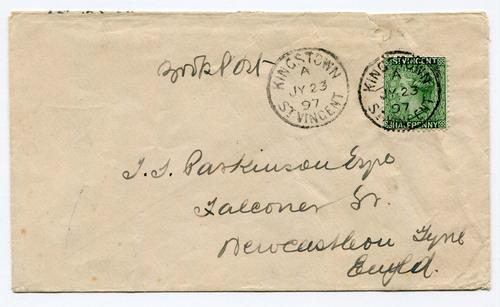 Book Post
KINGSTOWN
A
JY 23
97
ST VINCENT
ST VINCENT
KINGSTOWN
A
JY 23
97
ST VINCENT
HALFPENNY
T. S. Parkinson Esqe
Falconer St.
Newcastle on Tyne
Engld.